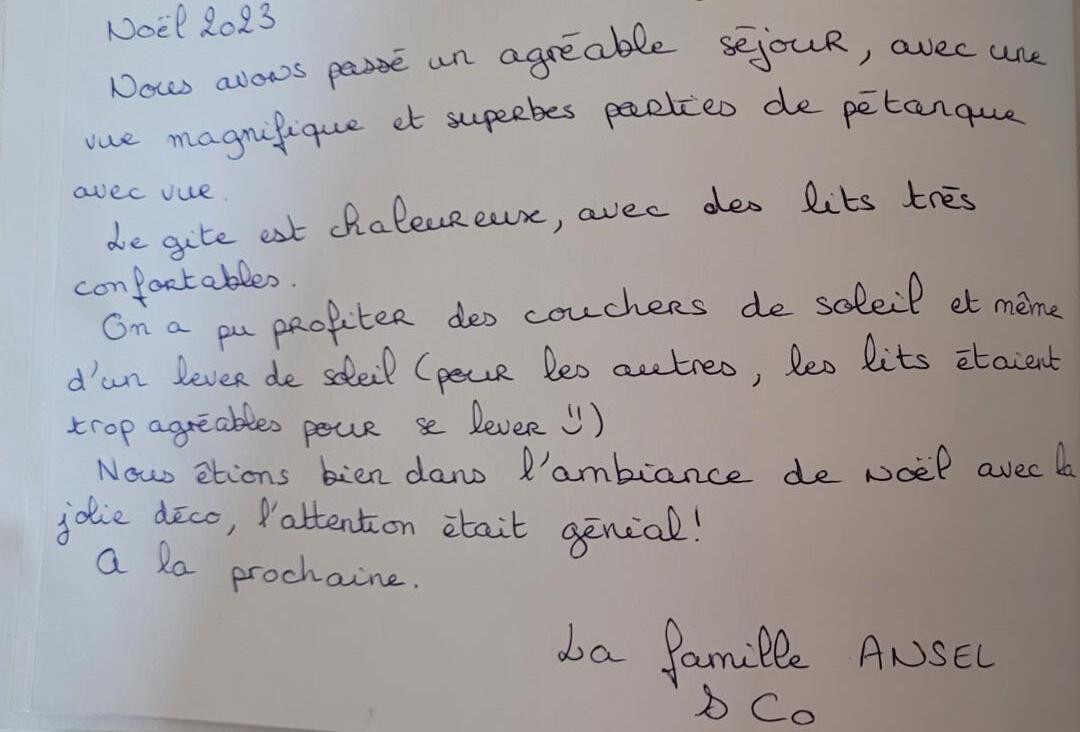 Noël 2023
Nous avons passé un agréable séjour, avec une
vue magnifique et superbes parties de pétanque
avec vue.
Le gite est chaleureuse, avec des lits très
confortables.
On a pu profiter des couchers de soleil et même
d'un lever de soleil (pour les autres, les lits étaient
trop agréables pour se lever :))
Nous étions bien dans l'ambiance de Noël avec la
jolie déco, l'attention était génial!
A la prochaine.
La famille ANSEL
& Co